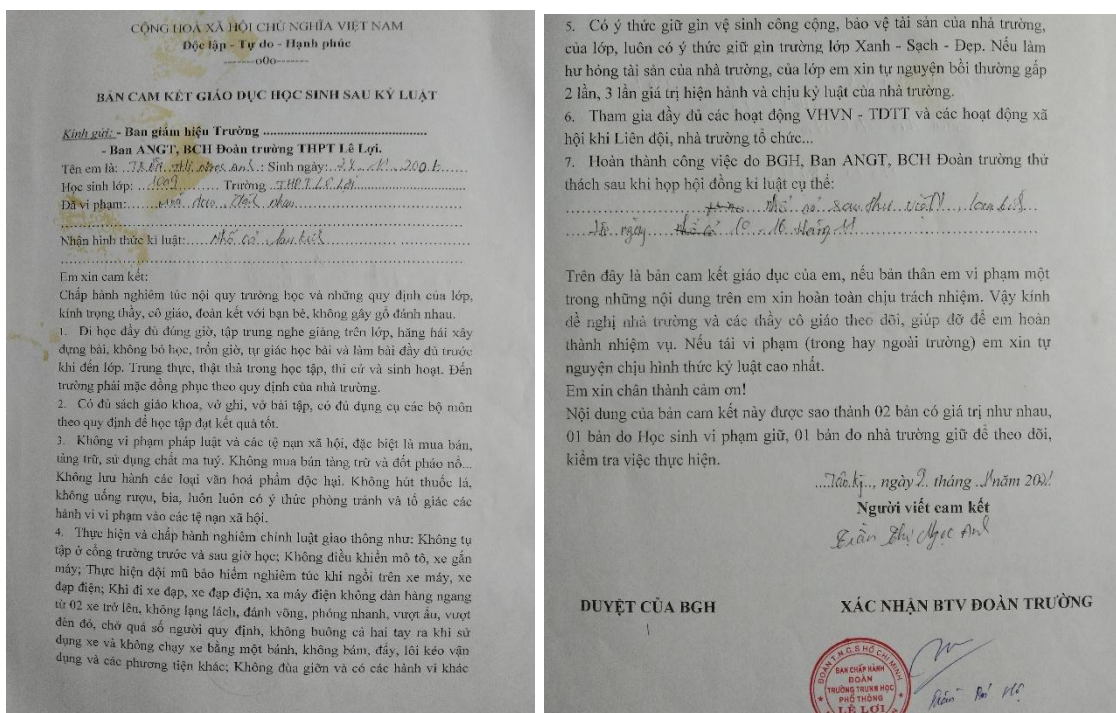 CỘNG HOÀ XÃ HỘI CHỦ NGHĨA VIỆT NAM
Độc lập - Tự do - Hạnh phúc
-------o0o-------
BẢN CAM KẾT GIÁO DỤC HỌC SINH SAU KỶ LUẬT
Kính gửi: - Ban giám hiệu Trường ..........................................
- Ban ANGT, BCH Đoàn trường THPT Lê Lợi.
Tên em là: Trần Thị Ngọc Anh Sinh ngày:
Học sinh lớp: Trường THPT Lê Lợi
Đã vi phạm: nhau
Nhận hình thức kỉ luật: Nhổ cỏ
Em xin cam kết:
Chấp hành nghiêm túc nội quy trường học và những quy định của lớp,
kính trọng thầy, cô giáo, đoàn kết với bạn bè, không gây gổ đánh nhau.
1. Đi học đầy đủ đúng giờ, tập trung nghe giảng trên lớp, hăng hái xây
dựng bài, không bỏ học, trốn giờ, tự giác học bài và làm bài đầy đủ trước
khi đến lớp. Trung thực, thật thà trong học tập, thi cử và sinh hoạt. Đến
trường phải mặc đồng phục theo quy định của nhà trường.
2. Có đủ sách giáo khoa, vở ghi, vở bài tập, có đủ dụng cụ các bộ môn
theo quy định để học tập đạt kết quả tốt.
3. Không vi phạm pháp luật và các tệ nạn xã hội, đặc biệt là mua bán,
tàng trữ, sử dụng chất ma tuý. Không mua bán tàng trữ và đốt pháo nổ...
Không lưu hành các loại văn hoá phẩm độc hại. Không hút thuốc lá,
không uống rượu, bia, luôn luôn có ý thức phòng tránh và tố giác các
hành vi vi phạm vào các tệ nạn xã hội.
4. Thực hiện và chấp hành nghiêm chỉnh luật giao thông như: Không tụ
tập ở cổng trường trước và sau giờ học; Không điều khiển mô tô, xe gắn
máy; Thực hiện đội mũ bảo hiểm nghiêm túc khi ngồi trên xe máy, xe
đạp điện; Khi đi xe đạp, xe đạp điện, xa máy điện không dàn hàng ngang
từ 02 xe trở lên, không lạng lách, đánh võng, phóng nhanh, vượt ẩu, vượt
đèn đỏ, chở quá số người quy định, không buông cả hai tay ra khi sử
dụng xe và không chạy xe bằng một bánh, không bám, đẩy, lôi kéo vận
dụng và các phương tiện khác; Không đùa giỡn và có các hành vi khác
5. Có ý thức giữ gìn vệ sinh công cộng, bảo vệ tài sản của nhà trường,
của lớp, luôn có ý thức giữ gìn trường lớp Xanh - Sạch - Đẹp. Nếu làm
hư hỏng tài sản của nhà trường, của lớp em xin tự nguyện bồi thường gấp
2 lần, 3 lần giá trị hiện hành và chịu kỷ luật của nhà trường.
6. Tham gia đầy đủ các hoạt động VHVN - TDTT và các hoạt động xã
hội khi Liên đội, nhà trường tổ chức...
7. Hoàn thành công việc do BGH, Ban ANGT, BCH Đoàn trường thử
thách sau khi họp hội đồng kỉ luật cụ thể:
nhổ cỏ sau thư viện
ngày 10 - 16 tháng 11
Trên đây là bản cam kết giáo dục của em, nếu bản thân em vi phạm một
trong những nội dung trên em xin hoàn toàn chịu trách nhiệm. Vậy kính
đề nghị nhà trường và các thầy cô giáo theo dõi, giúp đỡ để em hoàn
thành nhiệm vụ. Nếu tái vi phạm (trong hay ngoài trường) em xin tự
nguyện chịu hình thức kỷ luật cao nhất.
Em xin chân thành cảm ơn!
Nội dung của bản cam kết này được sao thành 02 bản có giá trị như nhau,
01 bản do Học sinh vi phạm giữ, 01 bản do nhà trường giữ để theo dõi,
kiểm tra việc thực hiện.
Tân kỳ, ngày 9 tháng 11 năm 2021
Người viết cam kết
Trần Thị Ngọc Anh
DUYỆT CỦA BGH
XÁC NHẬN BTV ĐOÀN TRƯỜNG
ĐOÀN T.N.C.S HỒ CHÍ MINH
BAN CHẤP HÀNH
ĐOÀN
TRƯỜNG TRUNG HỌC
PHỔ THÔNG
LÊ LỢI